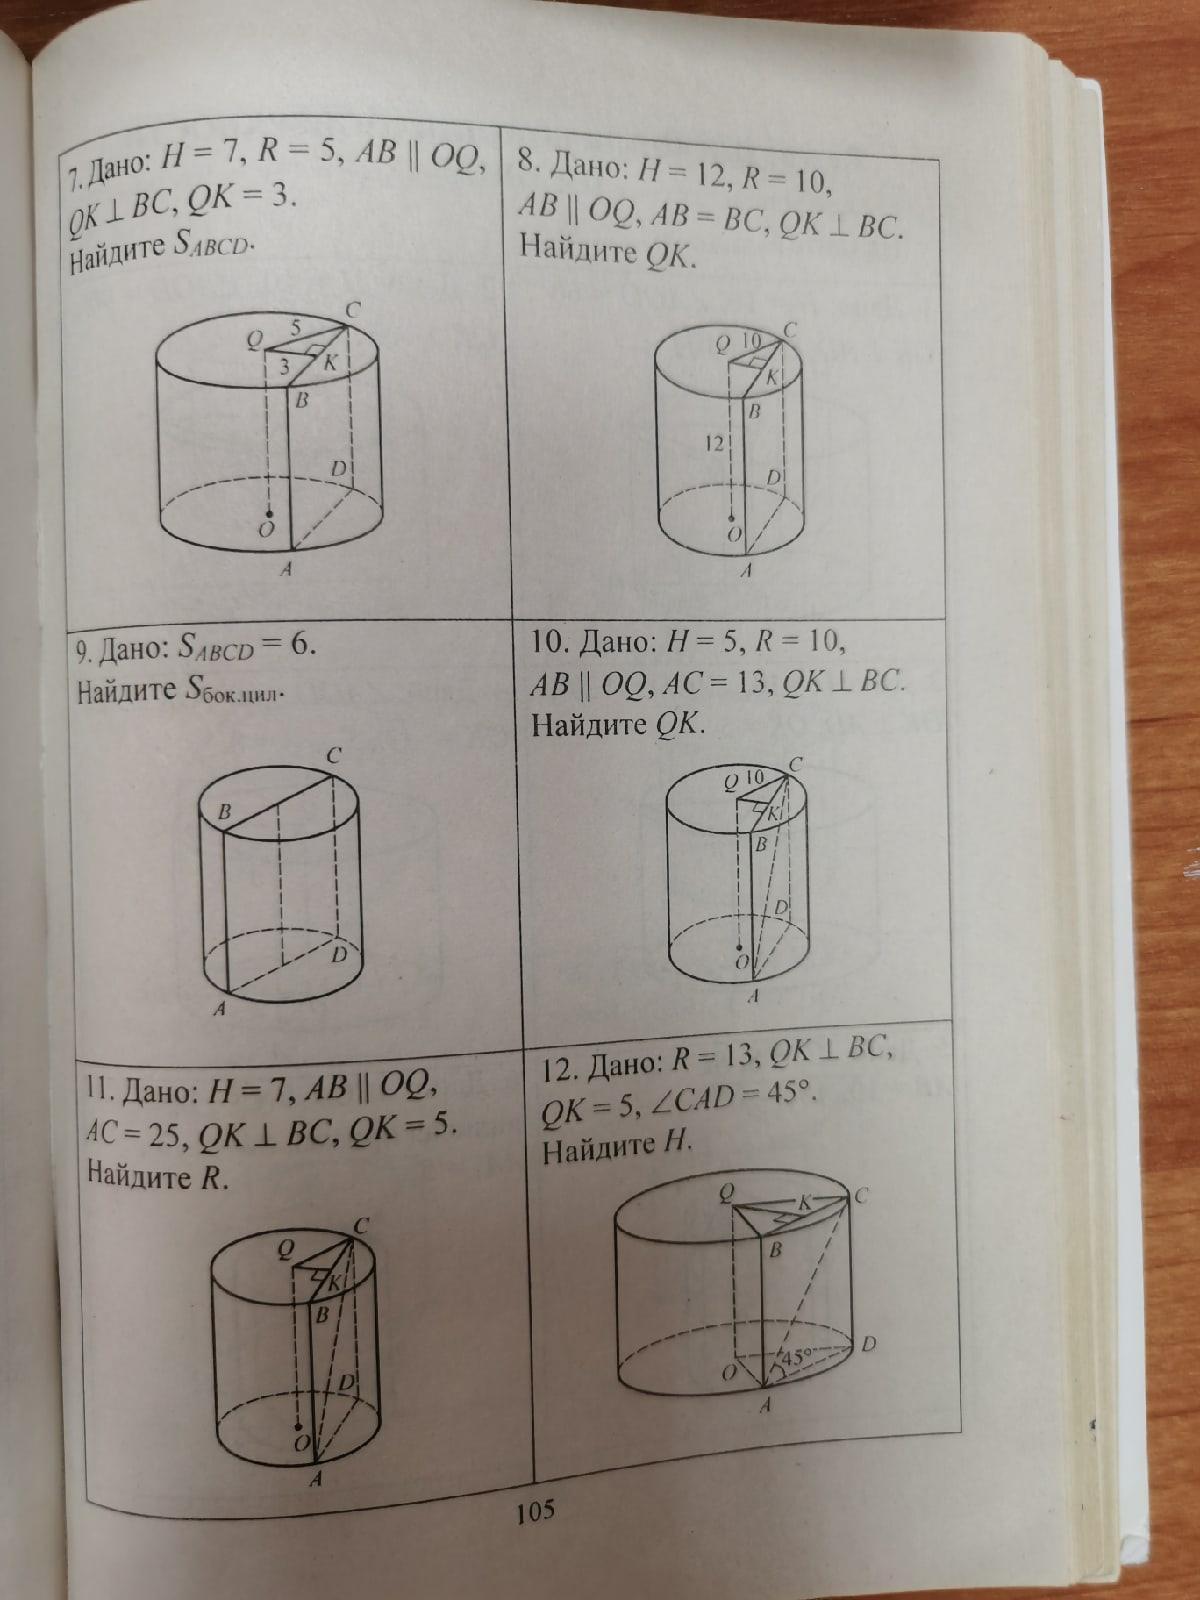 7. Дано: H = 7, R = 5, AB || OQ,
QK ⊥ BC, QK = 3.
Найдите SABCD.
C
5
Q
3
K
B
D
O
A
8. Дано: H = 12, R = 10,
AB || OQ, AB = BC, QK ⊥ BC.
Найдите QK.
C
Q
10
K
B
12
D
O
A
9. Дано: SABCD = 6.
Найдите Sбок.цил.
C
B
D
A
10. Дано: H = 5, R = 10,
AB || OQ, AC = 13, QK ⊥ BC.
Найдите QK.
C
Q
10
K
B
D
O
A
11. Дано: H = 7, AB || OQ,
AC = 25, QK ⊥ BC, QK = 5.
Найдите R.
C
Q
K
B
D
O
A
12. Дано: R = 13, QK ⊥ BC,
QK = 5, ∠CAD = 45°.
Найдите H.
Q
K
C
B
D
45°
O
A
105